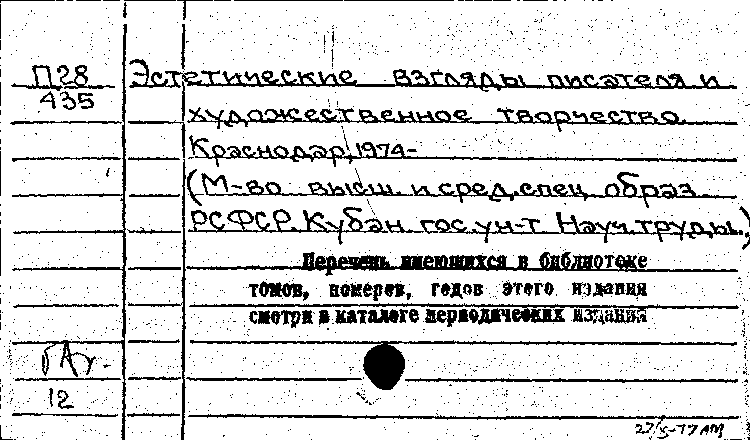 П28 Эстетические взгляды писателя и
435
художественное творчество
Краснодар, 1974-
(М-во высш. и сред. спец. образ.
РСФСР. Кубан. гос. ун-т Науч. труды.)
Перечень имеющихся в библиотеке
томов, номеров, годов этого издания
смотри в каталоге периодических изданий
12
27/X-77 АМ